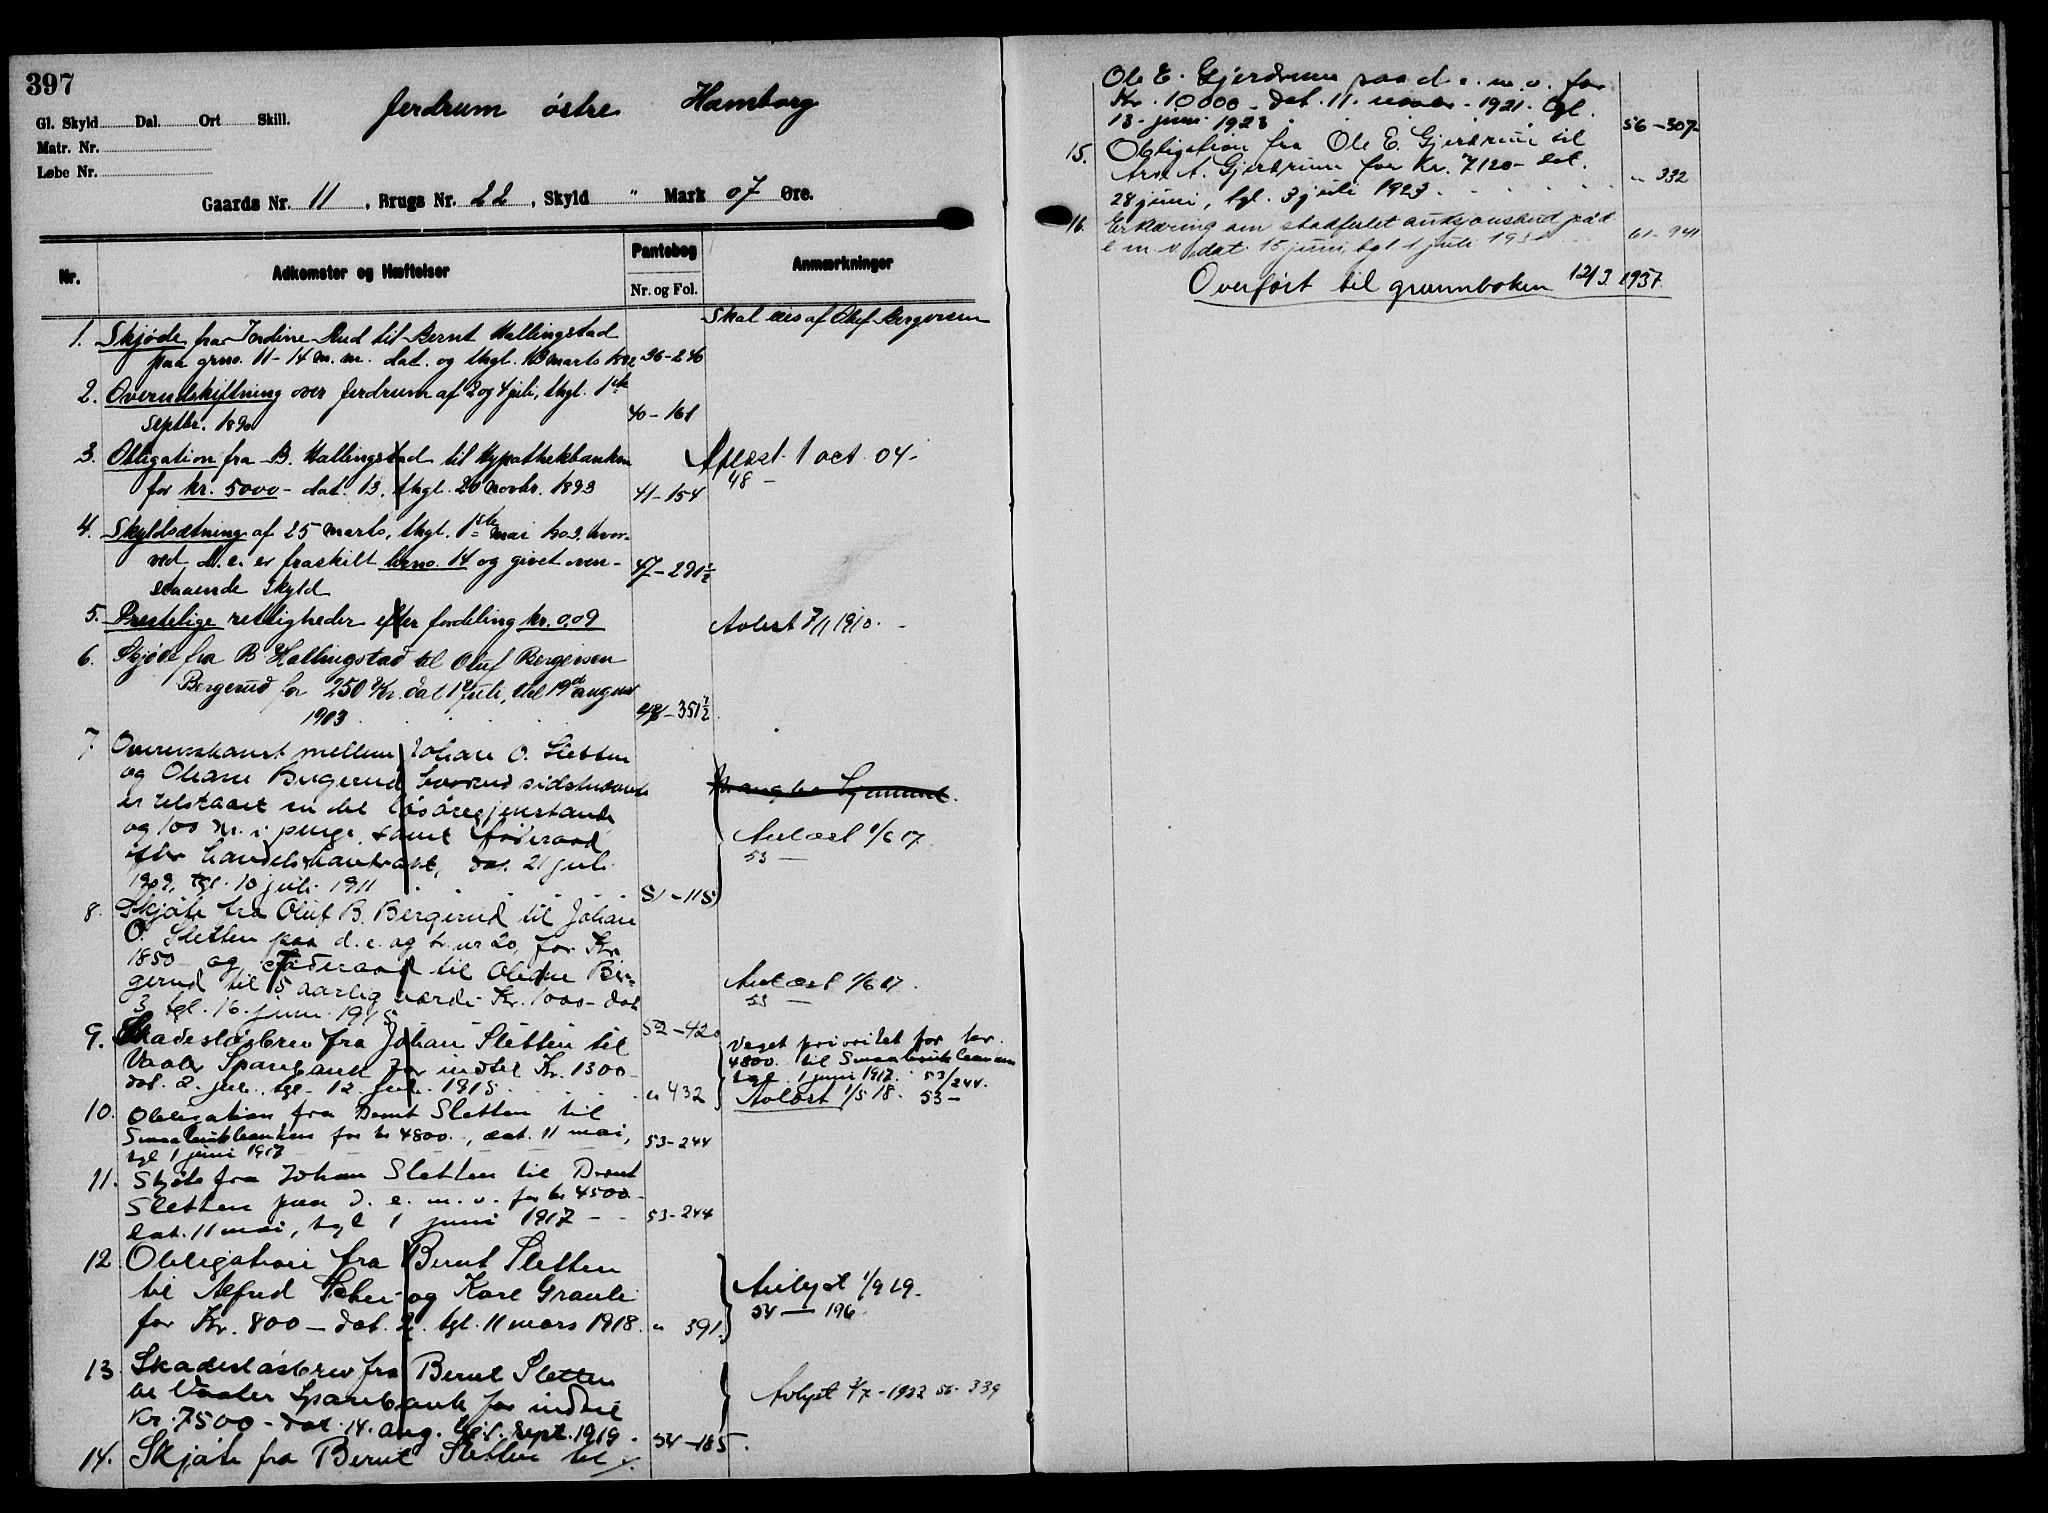 397
Jerdrum østre Hamborg
Gl. Skyld Dal. Ort Skill.
Matr. Nr.
Løbe Nr.
Gaards Nr. 11, Brugs Nr. 22, Skyld " Mark 07 Øre.
Nr. Adkomster og Hæftelser Pantebog Nr. og Fol. Anmærkninger
Skal læs af Oluf Bergersen
1. Skjøde fra Jordine Rud til Bernt Hallingstad
paa grno. 11-14 m. m. dat. og thgl. 13 marts 1892 36-246
2. Overudskiftning over Jerdrum af 2 og 4 juli, thgl. 1ste
septbr. 1890 40-161
3. Obligation fra B. Hallingstad til Hypothekbanken Aflæst 1 oct 04-
for kr. 5000- dat. 13, thgl. 20 novbr. 1893 41-154 48-
4. Skyldsætning af 25 marts, thgl. 1ste mai 1903, hvor-
ved d. e. er fraskilt brno. 14 og givet oven- 47-291½
staaende skyld
5. Prestelige rettigheder efter fordeling kr. 0,09 Avlest 7/11 1910.-
6. Skjøde fra B Hallingstad til Oluf Bergersen
Bergerud for 250 Kr. dat 1 juli, thl 19de august
1903 47-351½
7. Overenskomst mellem Johan O. Sletten
og Oliane Bergerud hvorved sidstnævnte
er tilstaaet en del løsøregjenstande
og 100 kr. i penge samt føderaad Avlæst 1/6 17.
efter handelskontrakt, dat. 21 juli 53-
1909, tgl. 10 juli 1911 51-115
8. Skjøte fra Oluf B. Bergerud til Johan
O. Sletten paa d. e. og br. nr 20, for Kr.
1850- og føderaad til Oliane Ber-
gerud til 5 aarlig værdi Kr. 1000- dat Avlæst 1/6 17.
3 tgl. 16. juni 1915 52-420 53-
9. Skadesløsbrev fra Johan Sletten til Veget prioritet for kr.
Vaaler Sparebank for indtil Kr. 1300- 4800. til Smaabruksbanken
dat. 2. juli, tgl. 12. juli 1915 " 432 tgl. 1 juni 1917. 53/244.
Avlæst 1/5 18. 53-
10. Obligation fra Bernt Sletten til
Smaabruksbanken for kr 4800.-, dat. 11 mai, 53-244
tgl 1 juni 1917
11. Skjøte fra Johan Sletten til Bernt
Sletten paa d. e. m. v. for kr 4500-
dat. 11 mai, tgl 1 juni 1917 - - 53-244
12 Obligation fra Bernt Sletten
til Alfred og Karl Grauli Avlyst 1/9 19.
for Kr. 800- dat. 2. tgl. 11 mars 1918. " 391. 54-196.
13 Skadesløsbrev fra Bernt Sletten
til Vaaler Sparebank for indtil Avlyst 3/7-1923 56-339
Kr. 7500- dat. 14. aug. tgl. 1. sept. 1919. 54-185.
14. Skjøte fra Bernt Sletten til
Ole E. Gjerdrum paa d. e. m. v. for
Kr. 10000- dat. 11. novbr. 1921. tgl.
13. juni 1923 56-307-
15. Obligation fra Ole E. Gjerdrum til
Arne A. Gjerdrum for Kr. 7120- dat.
28 juni, tgl. 3 juli 1923. " 332
16. Erklæring om stadfestet auksjonsbud på d
e m v, dat. 15 juni, tgl 1 juli 61-941
Overført til grunnboken 12/3 1957.